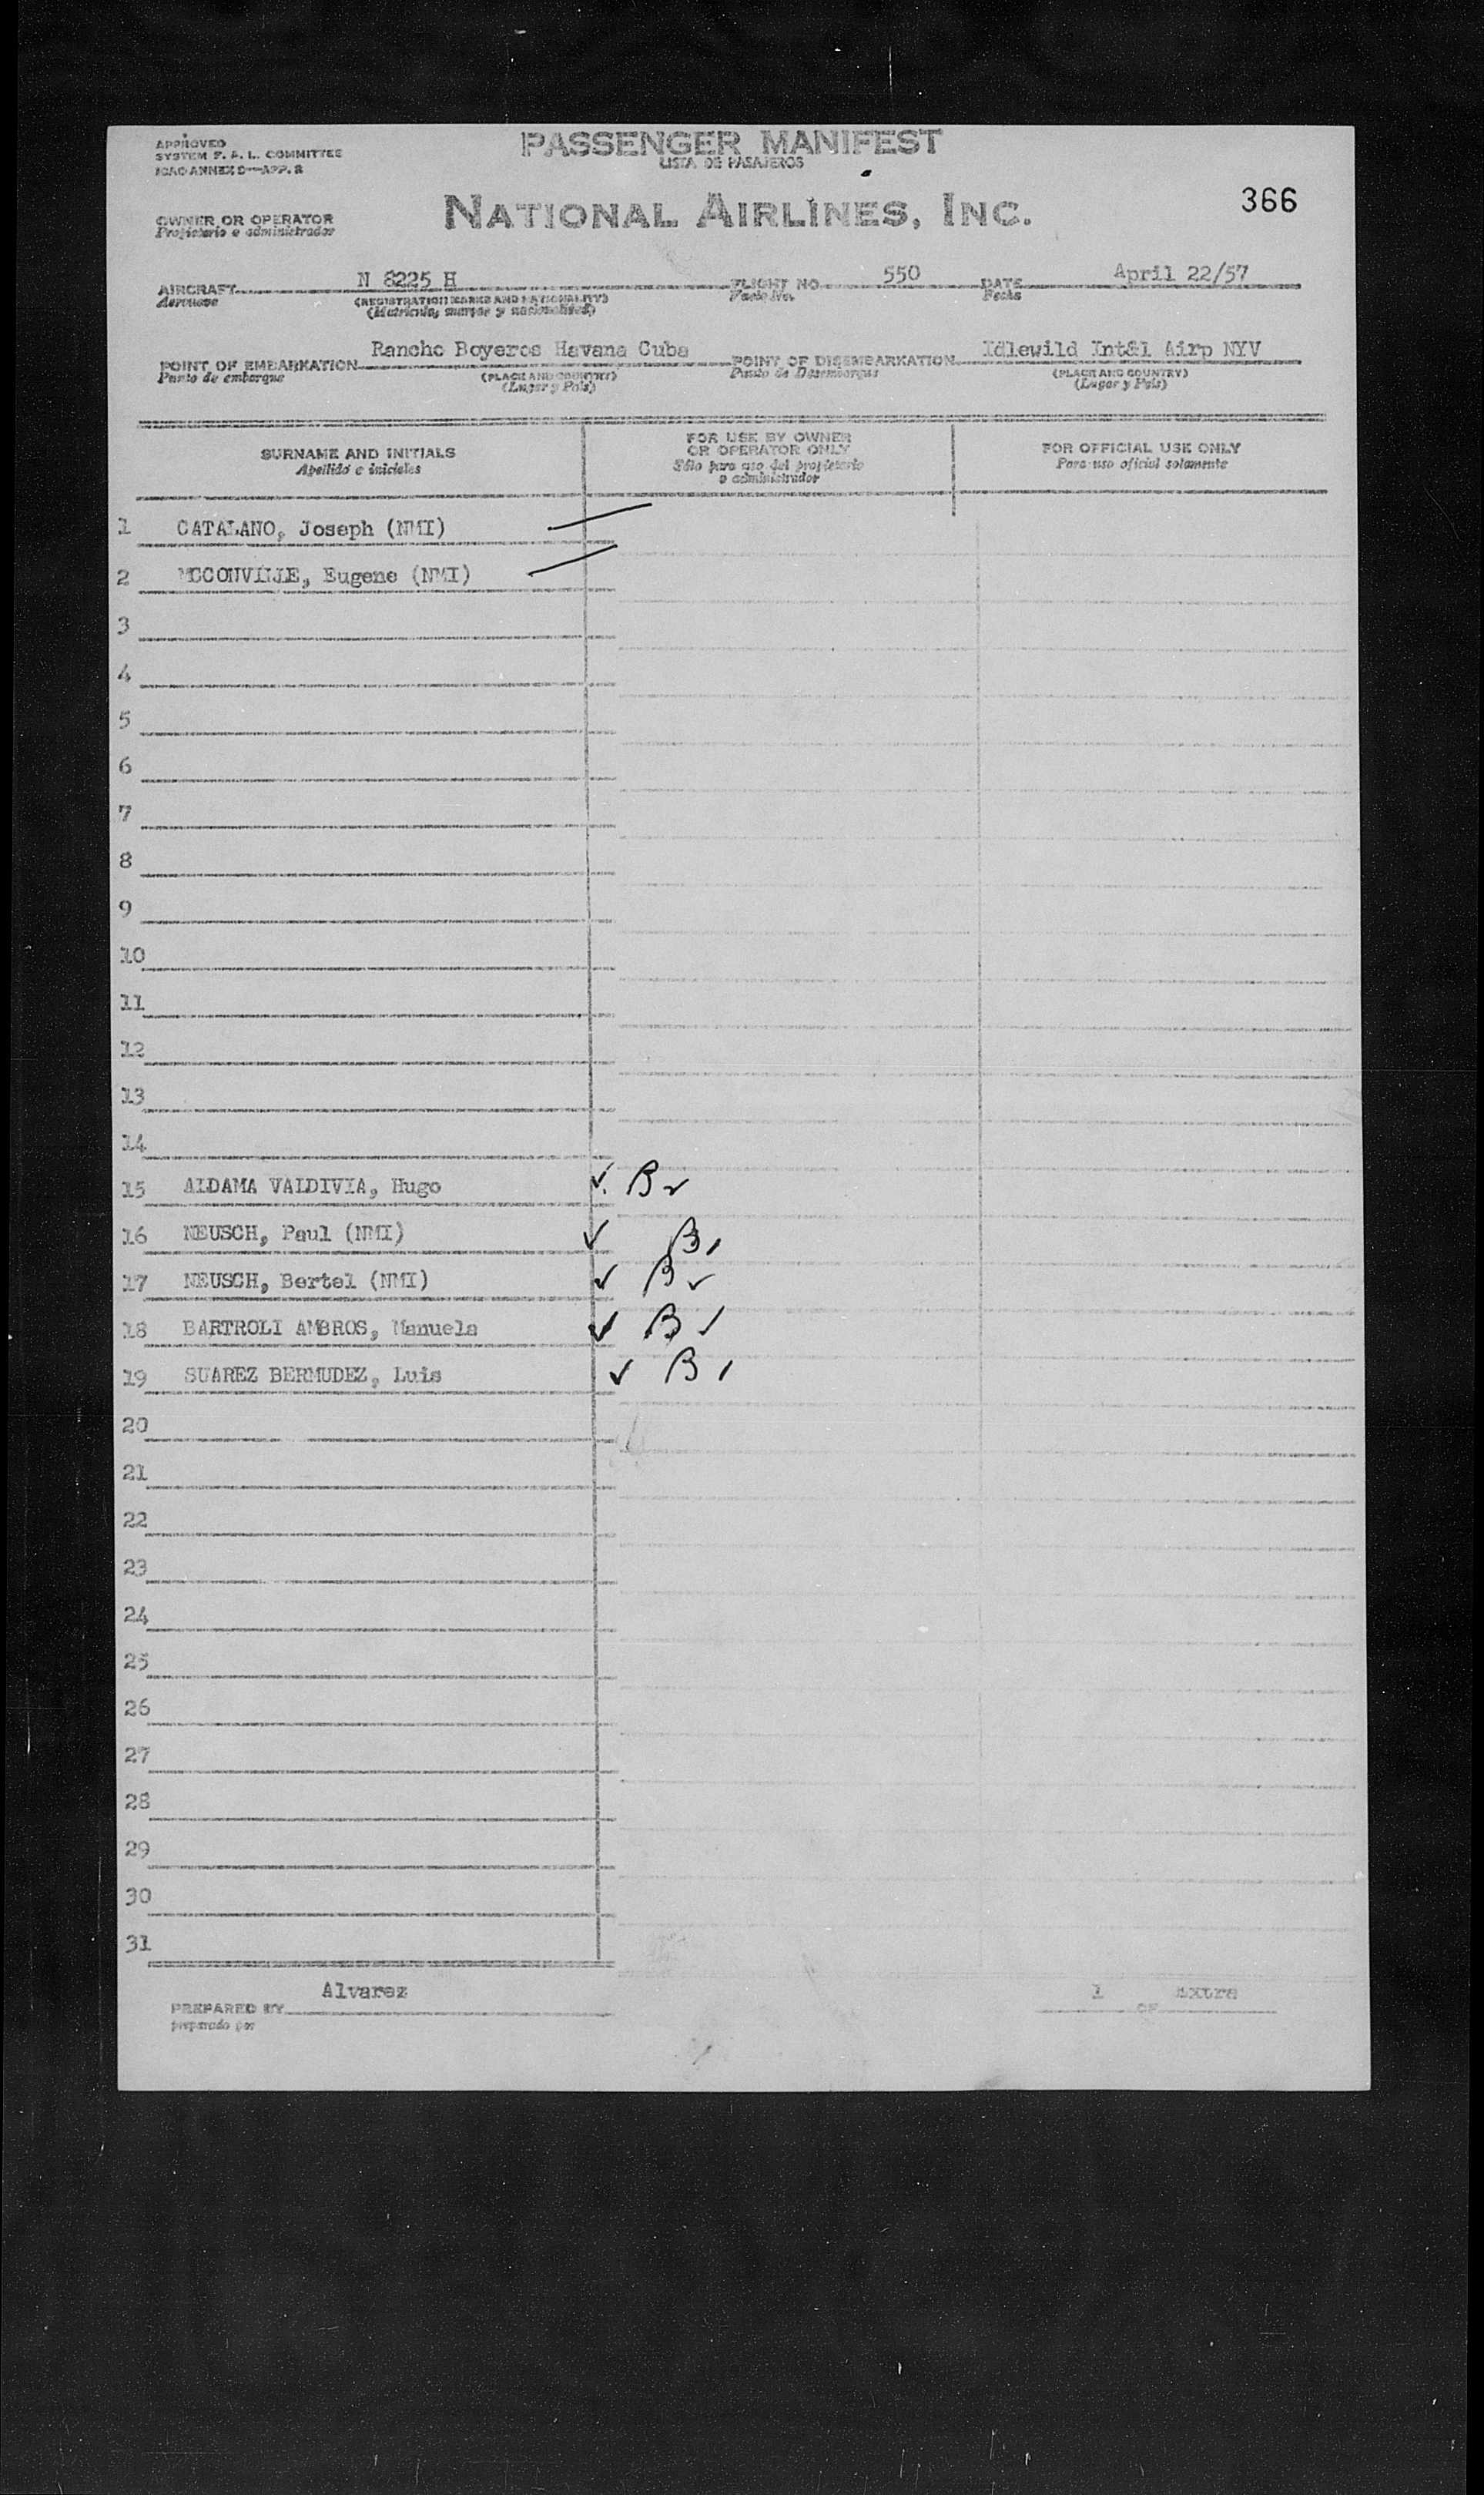 APPROVED
SYSTEM F. A. L. COMMITTEE
ICAO ANNEX 9—APP. 2
PASSENGER MANIFEST
LISTA DE PASAJEROS
366
OWNER OR OPERATOR
Propietario o administrador
NATIONAL AIRLINES, INC.
AIRCRAFT N 8225 H FLIGHT NO. 550 DATE April 22/57
Aeronave (REGISTRATION MARKS AND NATIONALITY) Vuelo No. Fecha
(Matricula, marcas y nacionalidad)
POINT OF EMBARKATION Rancho Boyeros Havana Cuba POINT OF DISEMBARKATION Idlewild Int&l Airp NYV
Punto de embarque (PLACE AND COUNTRY) Punto de Desembarque (PLACE AND COUNTRY)
(Lugar y País) (Lugar y País)
SURNAME AND INITIALS
Apellido e iniciales
FOR USE BY OWNER
OR OPERATOR ONLY
Sólo para uso del propietario
o administrador
FOR OFFICIAL USE ONLY
Para uso oficial solamente
1 CATALANO, Joseph (NMI)
2 MCCONVILLE, Eugene (NMI)
3
4
5
6
7
8
9
10
11
12
13
14
15 ALDAMA VALDIVIA, Hugo ✓ B2
16 NEUSCH, Paul (NMI) ✓ B1
17 NEUSCH, Bertel (NMI) ✓ B ✓
18 BARTROLI AMBROS, Manuela ✓ B ✓
19 SUAREZ BERMUDEZ, Luis ✓ B 1
20
21
22
23
24
25
26
27
28
29
30
31
PREPARED BY Alvarez 1 OF Extra
preparado por